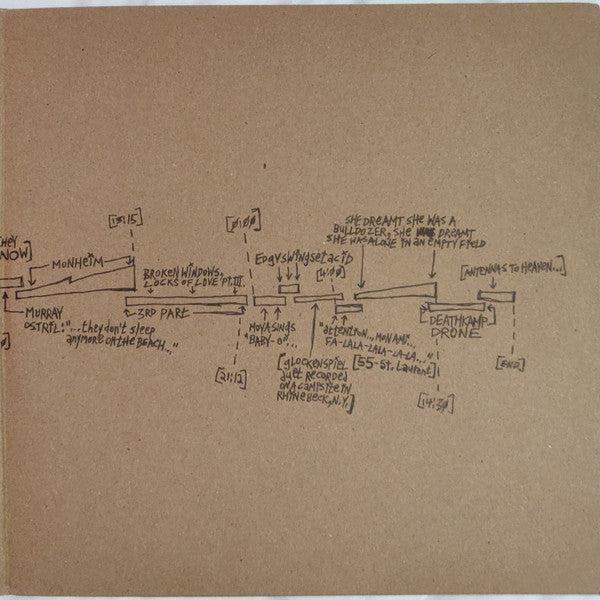 THEY
NOW]
MONHEIM
[13:15]
MURRAY
OSTRIL:"...they don't sleep
anymore on the BEACH..."
BROKEN WINDOWS,
LOCKS OF LOVE PT.III.
3RD PART
[21:12]
[0:00]
MOYA SINGS
"BABY-O"...
EDGYSWINGSETACID
[gLOCKENSPIEL
duet RECORDED
ON A CAMPSITE IN
RHINEBECK, N.Y.]
[4:00]
"attention...MON AMI...
FA-LALA-LALA-LA-LA..."
[55-St. Laurent]
SHE DREAMT SHE WAS A
BULLDOZER, SHE DREAMT
SHE WAS ALONE IN AN EMPTY FIELD
[14:30]
DEATHKAMP
DRONE
[ANTENNAS TO HEAVEN...]
[END]